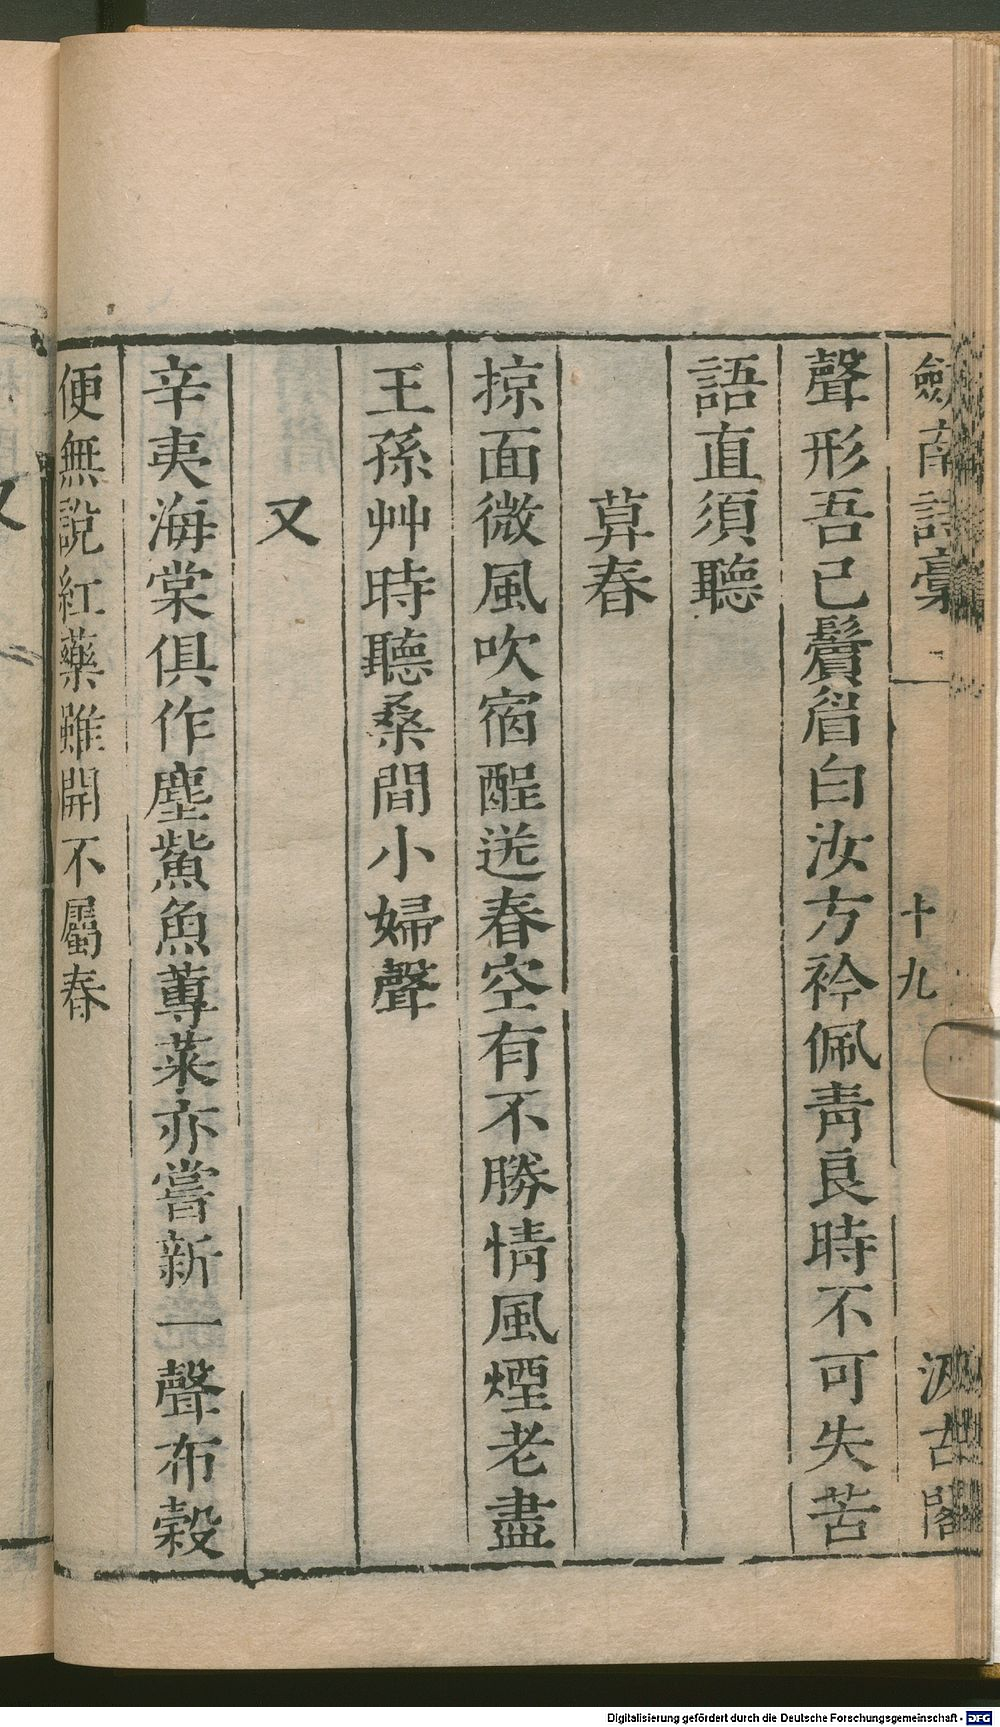 劒南詩稾 一 十九 汲古閣
聲形吾已鬢眉白汝方衿佩靑良時不可失苦
語直須聽
莫春
掠面微風吹宿酲送春空有不勝情風煙老盡
王孫艸時聽桑間小婦聲
又
辛夷海棠俱作塵鮆魚蓴菜亦嘗新一聲布穀
便無說紅藥雖開不屬春
又
Digitalisierung gefördert durch die Deutsche Forschungsgemeinschaft - DFG